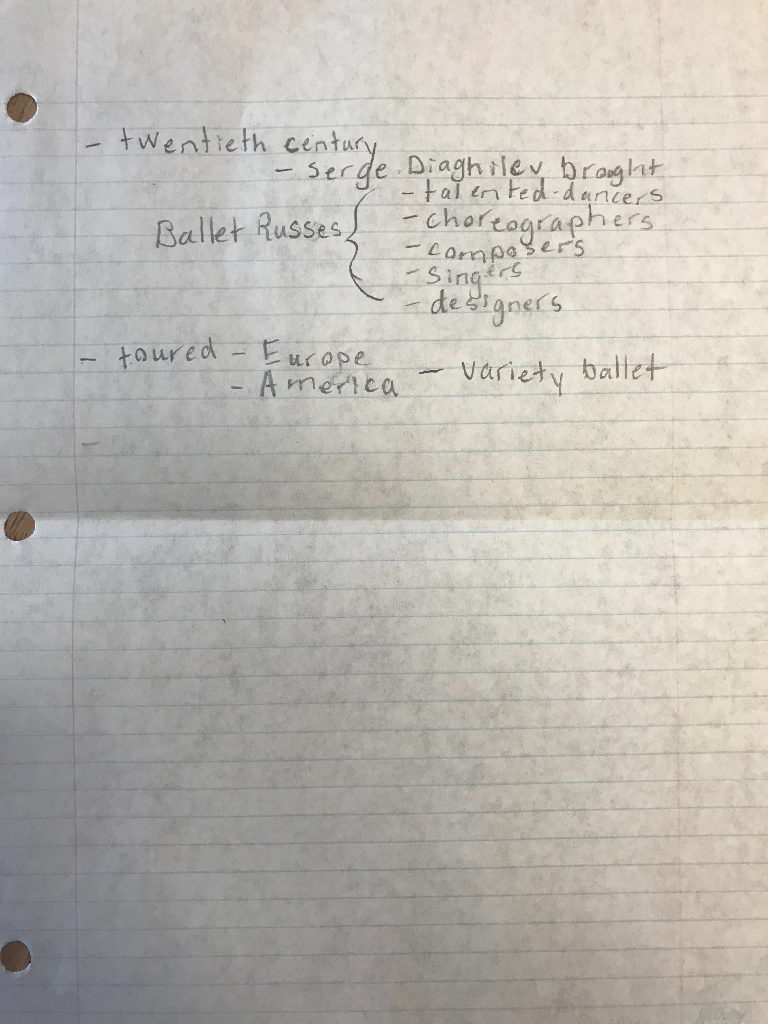 - twentieth century
- serge Diaghilev brought
- talented dancers
Ballet Russes { - choreographers
- composers
- singers
- designers
- toured - Europe
- America - variety ballet
-